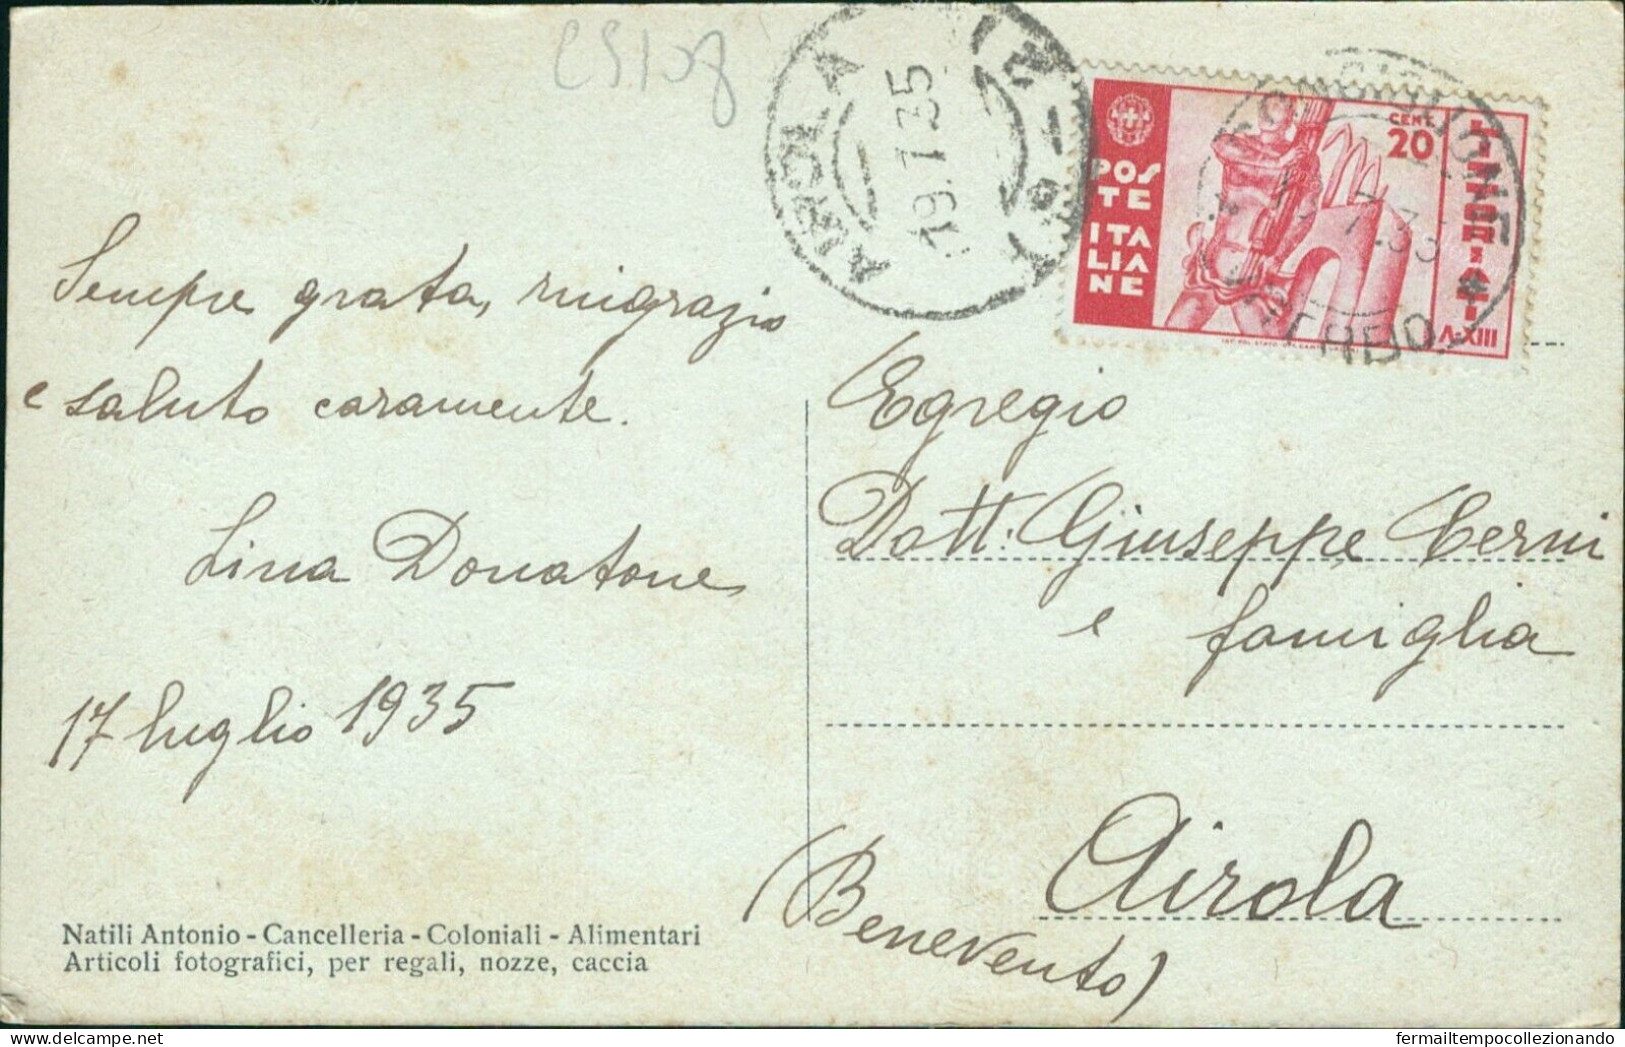 cs108
AIROLA
19.7.35
POS
TE
ITA
LIA
NE
CENT.
20
A·XIII
7.35
Sempre grata, ringrazio
e saluto caramente.
Lina Donatone
17 luglio 1935
Egregio
Dott. Giuseppe Cerni
e famiglia
Airola
(Benevento)
Natili Antonio - Cancelleria - Coloniali - Alimentari
Articoli fotografici, per regali, nozze, caccia
fermailtempocollezionando